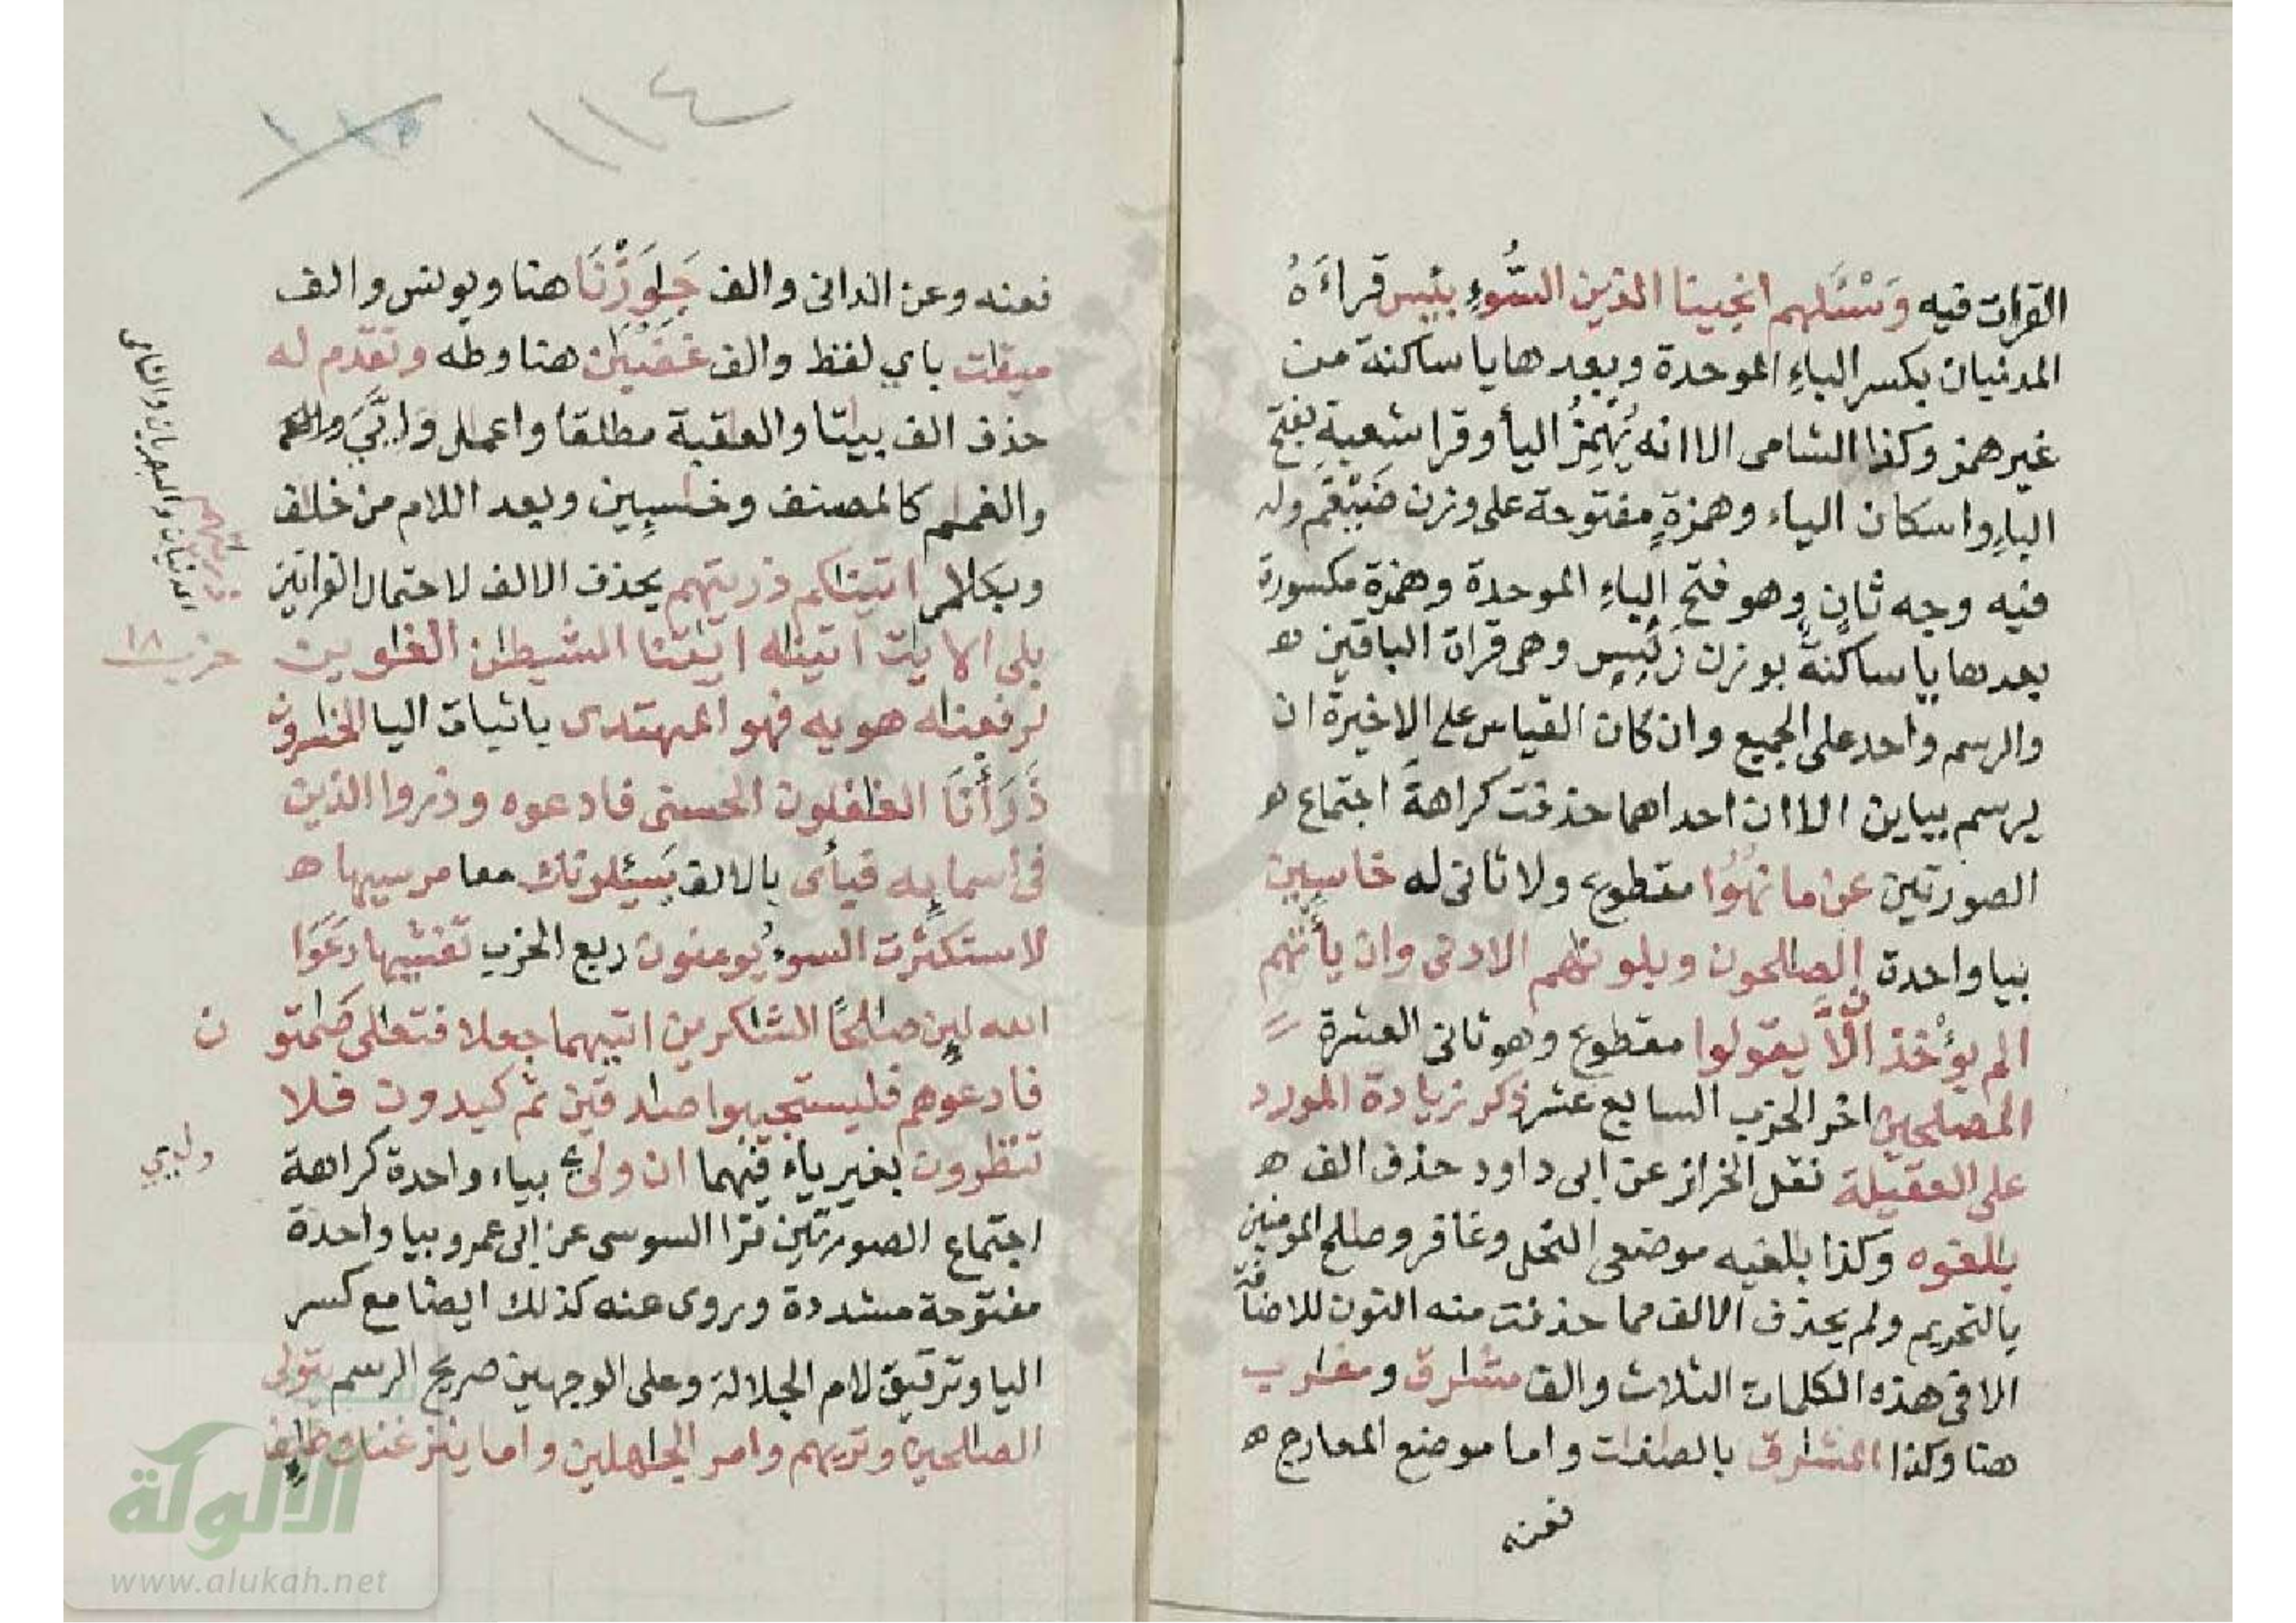 القرات فيه وَسْئَلهم انجينا الذين السُّوءِ بئيس قراءَهُ
المدنيان بكسر الباءِ الموحدة وبعدها يا ساكنة من
غير همز وكذا الشامى الا انه يُهمِزُ اليأ وقرا شعبة بفتح
الباءِ واسكان الياء وهمزةٍ مفتوحة على وزن ضَيْغَم وله
فيه وجه ثانٍ وهو فتح الباءِ الموحدة وهمزة مكسورة
بعدها يا ساكنة بوزن رَئِيس وهى قراة الباقين ھ
والرسم واحد على الجميع وان كان القياس على الاخيرة ان
يرسم بياين الا ان احداهما حذفت كراهة اجتماع ھ
الصورتين عن ما نهُوا مقطوع ولا ثانى له خاسِيِن
بيا واحدة الصالحون وبلونهم الادنى وان يأتهم
الم يؤخذ الَّا يقولوا مقطوع وهو ثانى العشرة
المصلحين اخر الحزب السابع عشر ذكر زيادة المورد
على العقيلة نقل الخراز عن ابى داود حذف الف ھ
بلغوه وكذا بلغيه موضعى النحل وغافر وصلح المومنين
بالتحريم ولم يحذف الالف مما حذفت منه النون للاضافة
الا فى هذه الكلمات الثلاث والف مشرق ومغرب
هنا وكذا المشرق بالصفات واما موضع المعارج ھ
فعنه
١١٤
فعنه وعن الدانى والف جَوَزْنَا هنا ويونس والف
ميقت باي لفظ والف غضبن هنا وطه وتقدم له
حذف الف بيتا والعقبة مطلقا واعمل وايَّىَ
والغمم كالمصنف وخسيِن وبعد اللام من خلف
وبكلم اتيناكم ذريتهم بحذف الالف لاحتمال القراتين
بلى الايت اتينه ايتنا الشيطن الغوين
لرفعنه هويه فهو المهتدى باثبات اليا الخسرون
ذَرَأْنَا الغفلون الحسنى فادعوه وذروا الذين
فى اسمايه فبأى بالالف يسئلونك معا مرسيها ھ
لاستكثرت السوءُ يومنون ربع الحزب تغشيها دعَوَا
الله لين صالحًا الشكرين اتيهما جعلا فتعلى صمتون
فادعوهم فليستجيبوا صدقين ثم كيدون فلا
تنظرون بغير ياء فيهما ان ولىّ بياء واحدة كراهة
اجتماع الصورتين قرا السوسى عن ابى عمرو بيا واحدة
مفتوحة مشددة وروى عنه كذلك ايضا مع كسر
اليا وترقيق لام الجلالة وعلى الوجهين صريح الرسم يتولى
الصالحين وتريهم وامر الجهلين واما ينزغنك طيف
ذريتهم
المدنيان والبصريان والشامى
حزب ١٨
ولىي
الألوكة
www.alukah.net